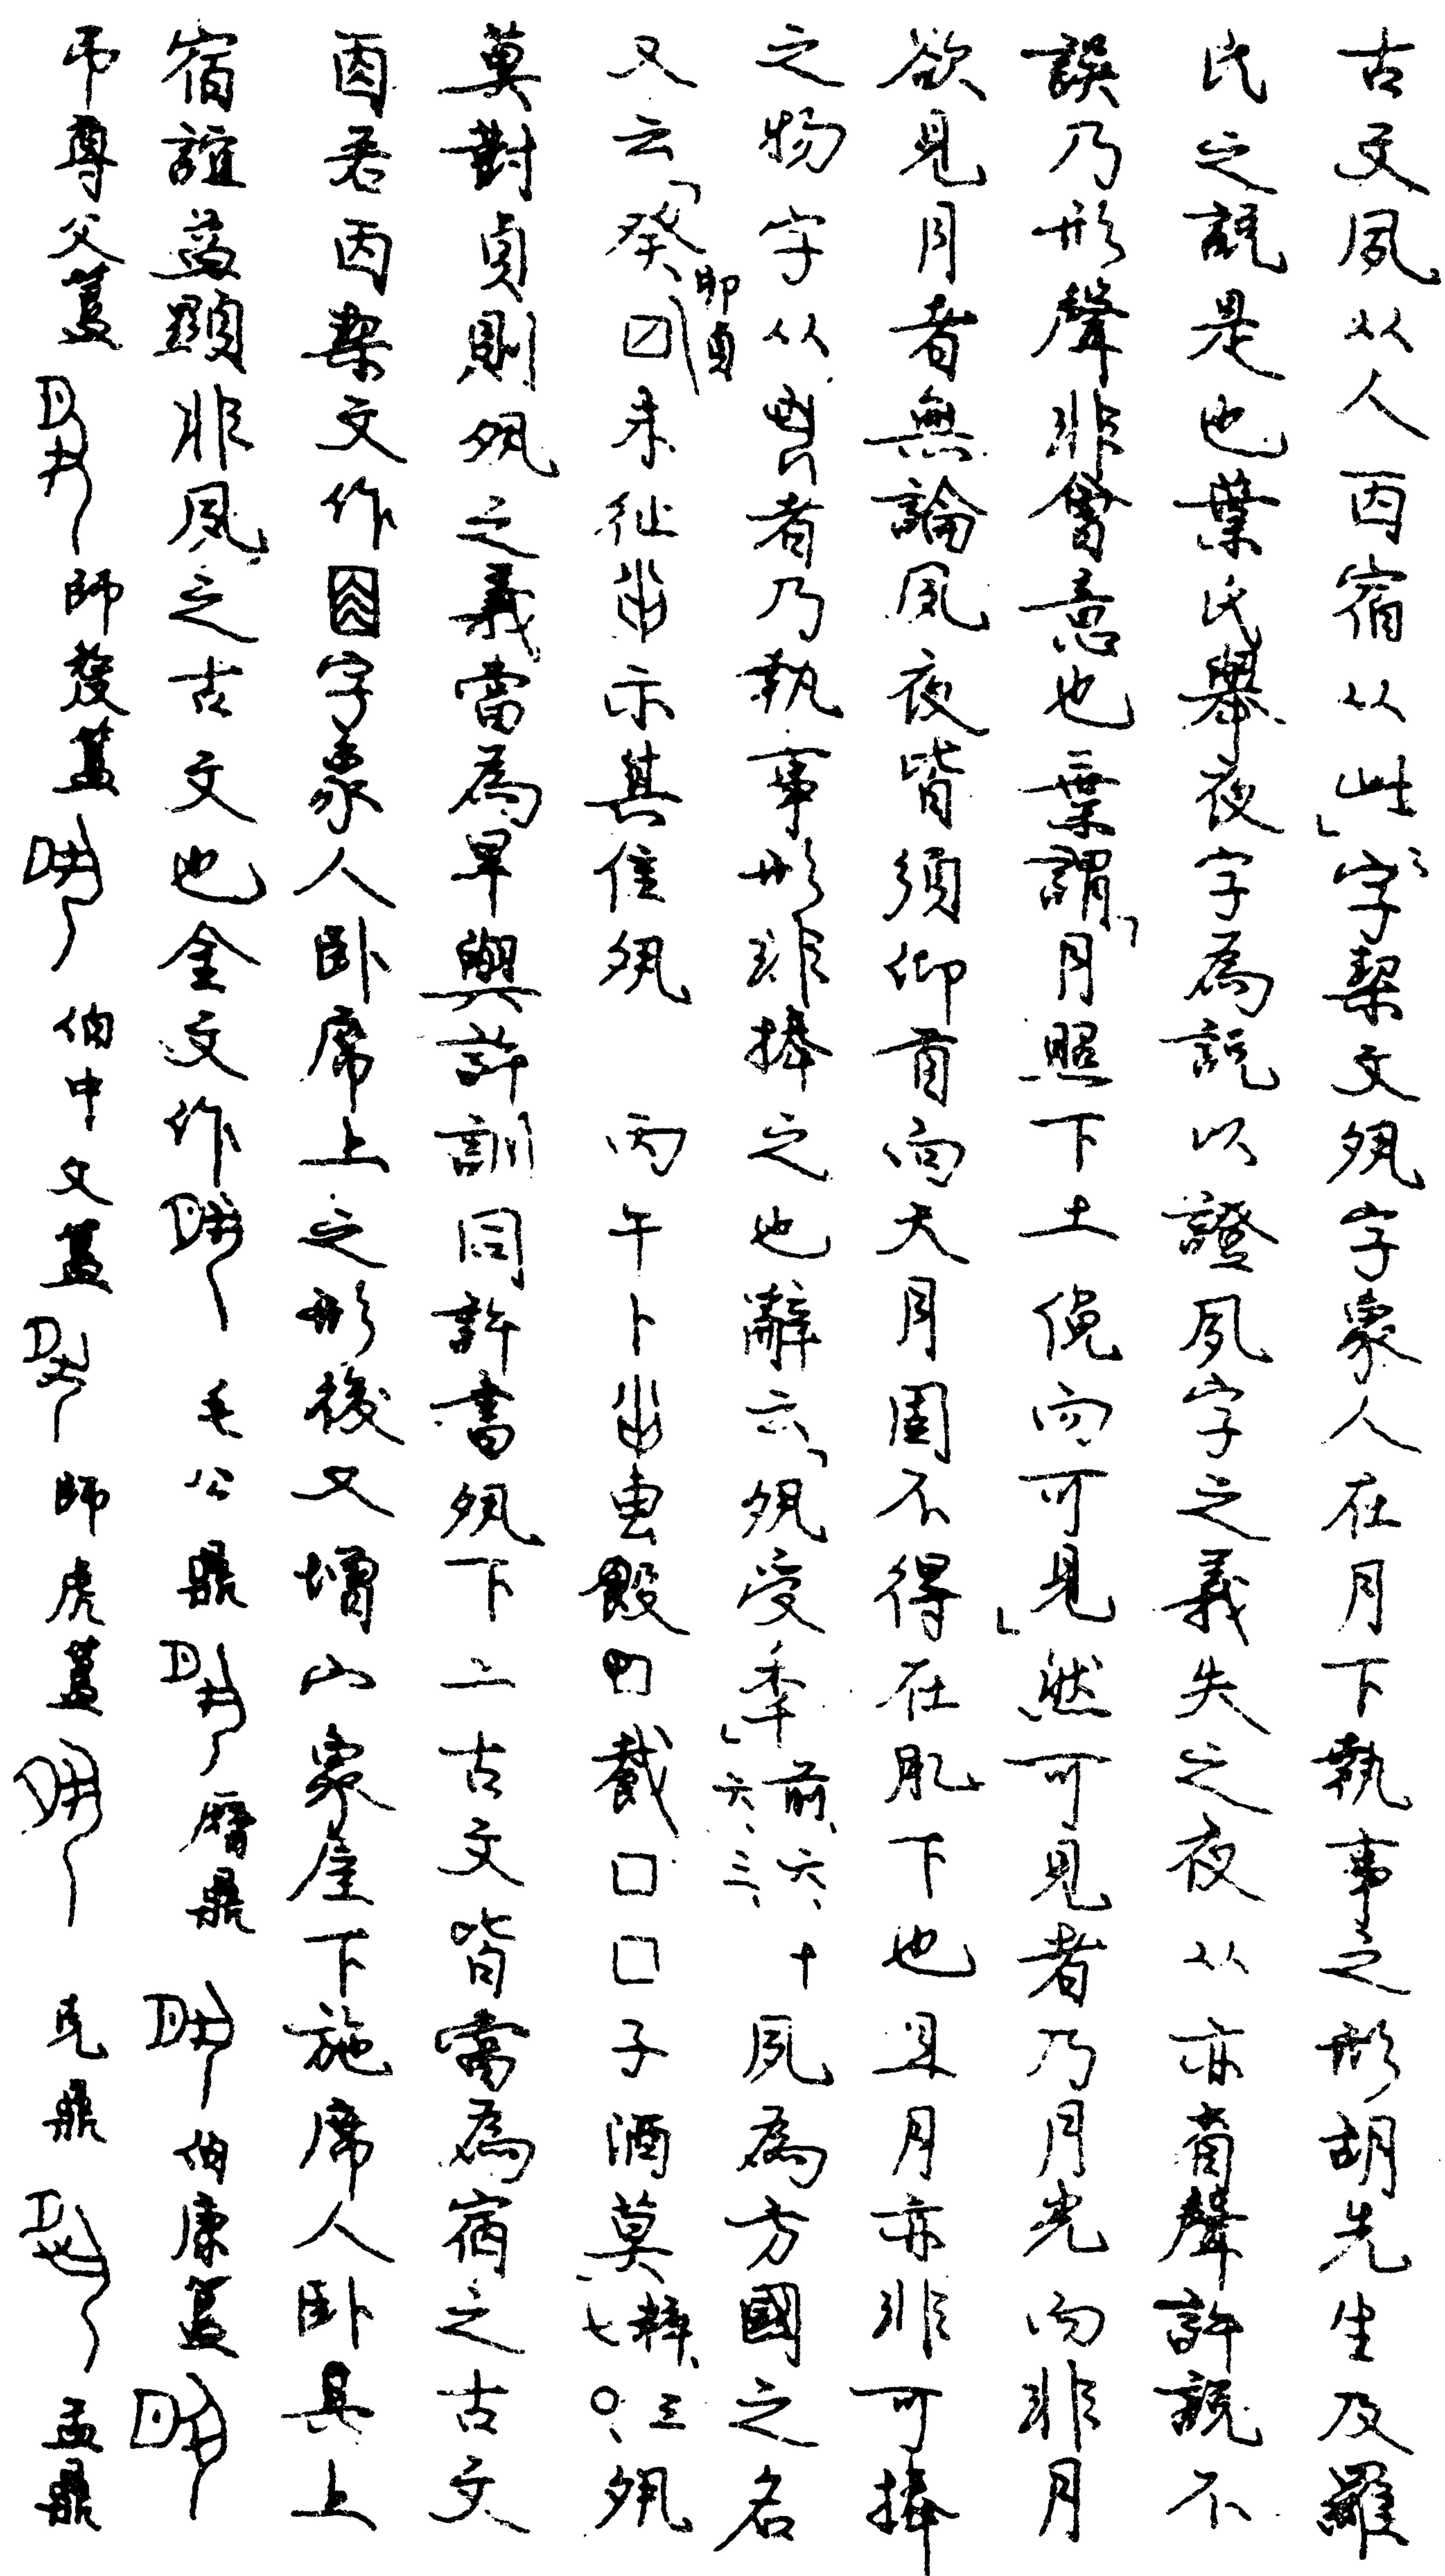 古文夙从人㐁宿从此」字栔文夗字象人在月下執事之形胡先生及羅
氏之說是也葉氏舉夜字為說以證夙字之義失之夜从亦省聲許說不
誤乃形聲非會意也葉謂「月照下土俛而可見」然可見者乃月光而非月
欲見月者無論夙夜皆須仰首向天月固不得在夙下也且月亦非可捧
之物字从者乃執事形非捧之也辭云「夙受年」前、六、十六、三、夙為方國之名
又云「癸囗即貞未徙㞢示其隹夙　丙午卜㞢叀㱿囗囗㦰囗囗子酒莫粹、三七〇、夙
莫對貞則夙之義當為早與許訓同許書夙下二古文皆當為宿之古文
㐁若㐁栔文作字象人卧席上之形後又增宀象屋下施席人卧其上
宿誼益顯非夙之古文也金文作毛公鼎曆鼎伯康簋
弔尊父簋師𡢁簋伯中父簋師虎簋克鼎盂鼎